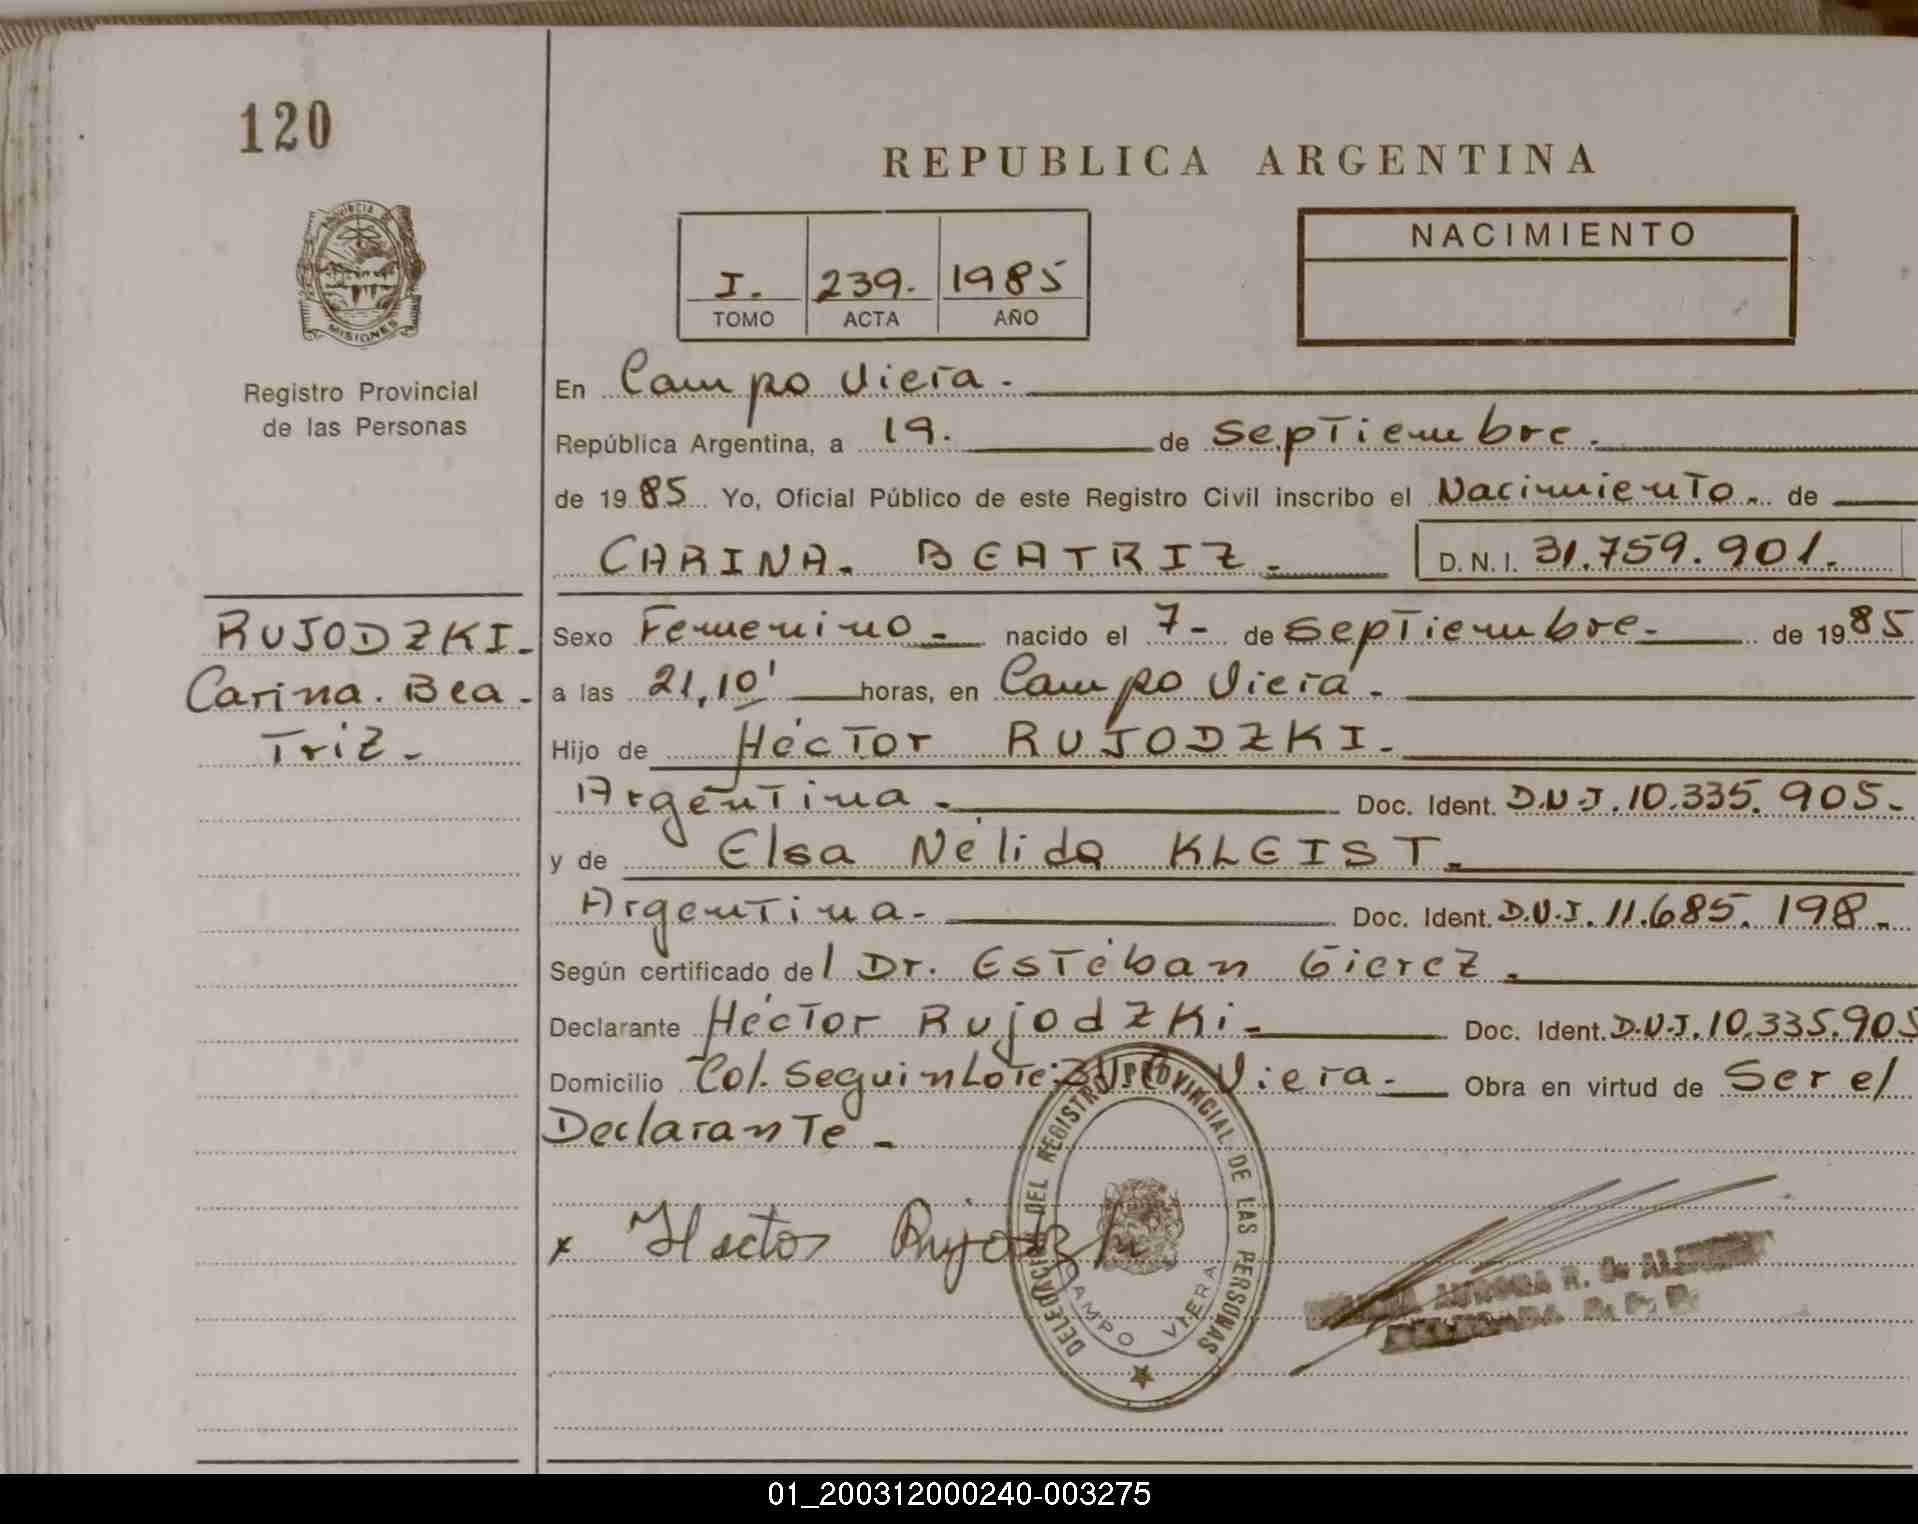 120
REPUBLICA ARGENTINA
PROVINCIA DE
MISIONES
Registro Provincial
de las Personas
I. 239. 1985
TOMO ACTA AÑO
NACIMIENTO
En Campo Viera.
República Argentina, a 19. de Septiembre.
de 1985 Yo, Oficial Público de este Registro Civil inscribo el Nacimiento. de
CARINA. BEATRIZ. D.N.I. 31.759.901.
RUJODZKI.
Carina. Bea-
Triz.
Sexo Femenino - nacido el 7- de Septiembre- de 1985
a las 21,10' horas, en Campo Viera.
Hijo de Héctor RUJODZKI.
Argentina. Doc. Ident. D.N.I. 10.335.905.
y de Elsa Nélida KLEIST.
Argentina. Doc. Ident. D.N.I. 11.685.198.
Según certificado del Dr. Estéban Gierez.
Declarante Héctor Rujodzki- Doc. Ident. D.N.I. 10.335.905
Domicilio Col. Seguin Lote Viera. Obra en virtud de Ser el
Declarante -
x Hector Rujodzki
DELEGACION DEL REGISTRO PROVINCIAL DE LAS PERSONAS
CAMPO VIERA
AURORA R. de
DELEGADA R. P. P.
01_200312000240-003275